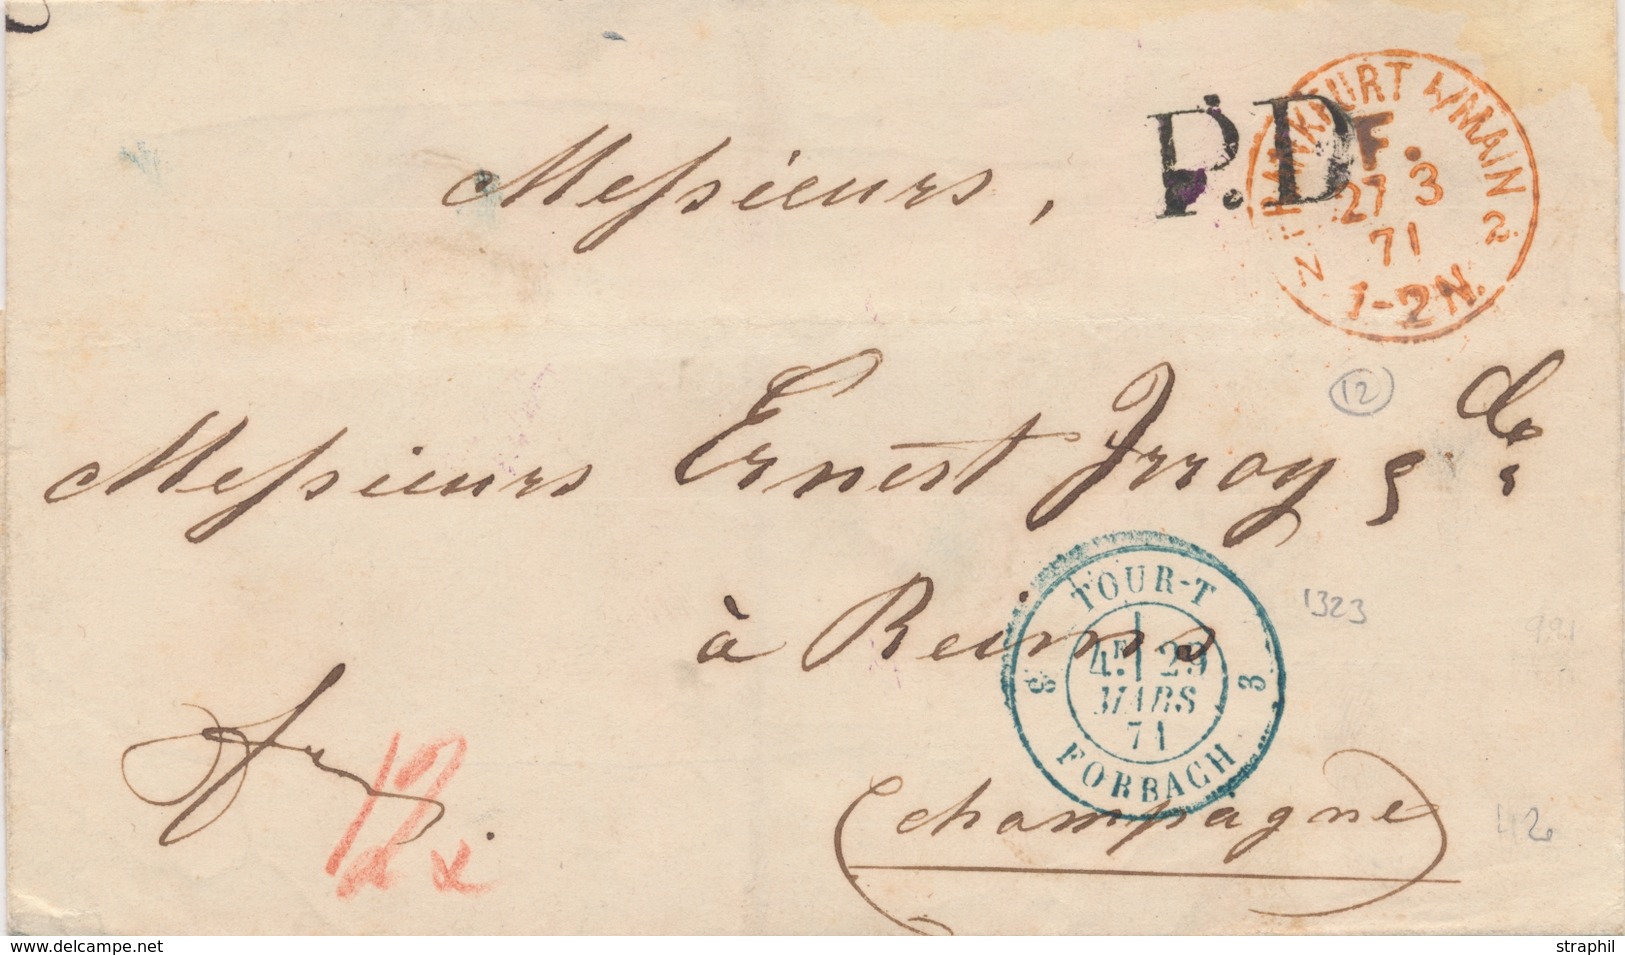 P.D
F.
FRANKFURT A/MAIN
N: 2
27 3
71
1-2N.
Messieurs,
12
Messieurs Ernest Irroy & Cie
à Reims
TOUR-T
4E 29
MARS
71
3 3
FORBACH
1323
991
fr
(champagne)
42
www.delcampe.net
straphil